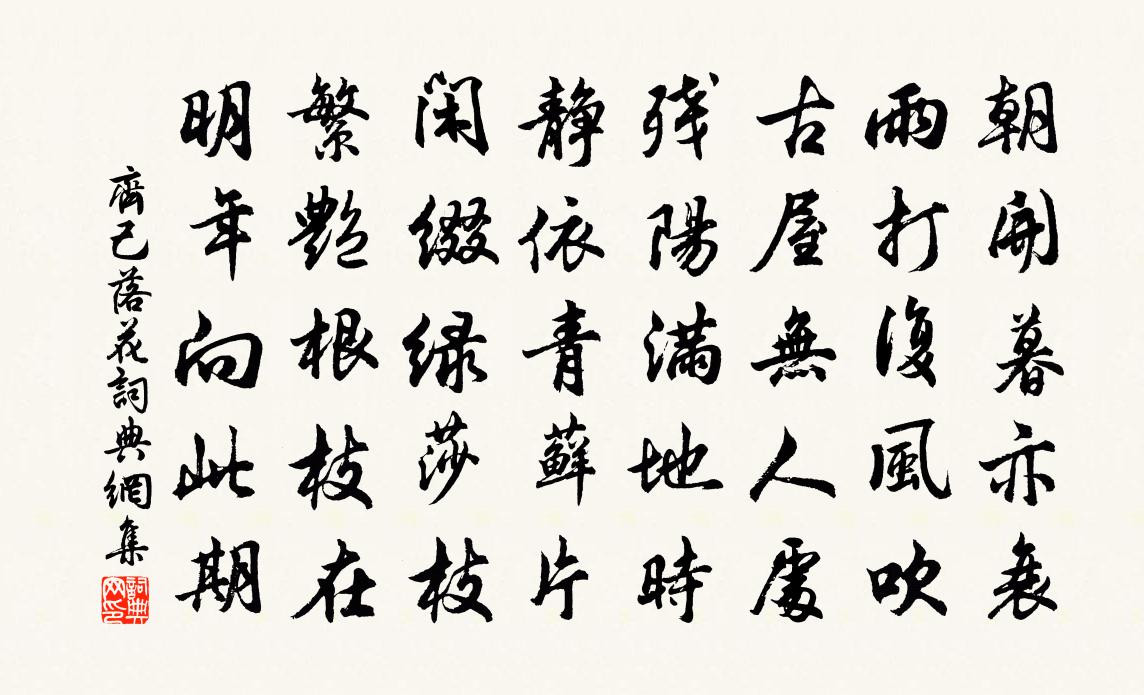 朝開暮亦衰
雨打復風吹
古屋無人處
残陽滿地時
静依青蘚片
闲綴緑莎枝
繁艷根枝在
明年向此期
齊己落花詞典網集
詞典网印